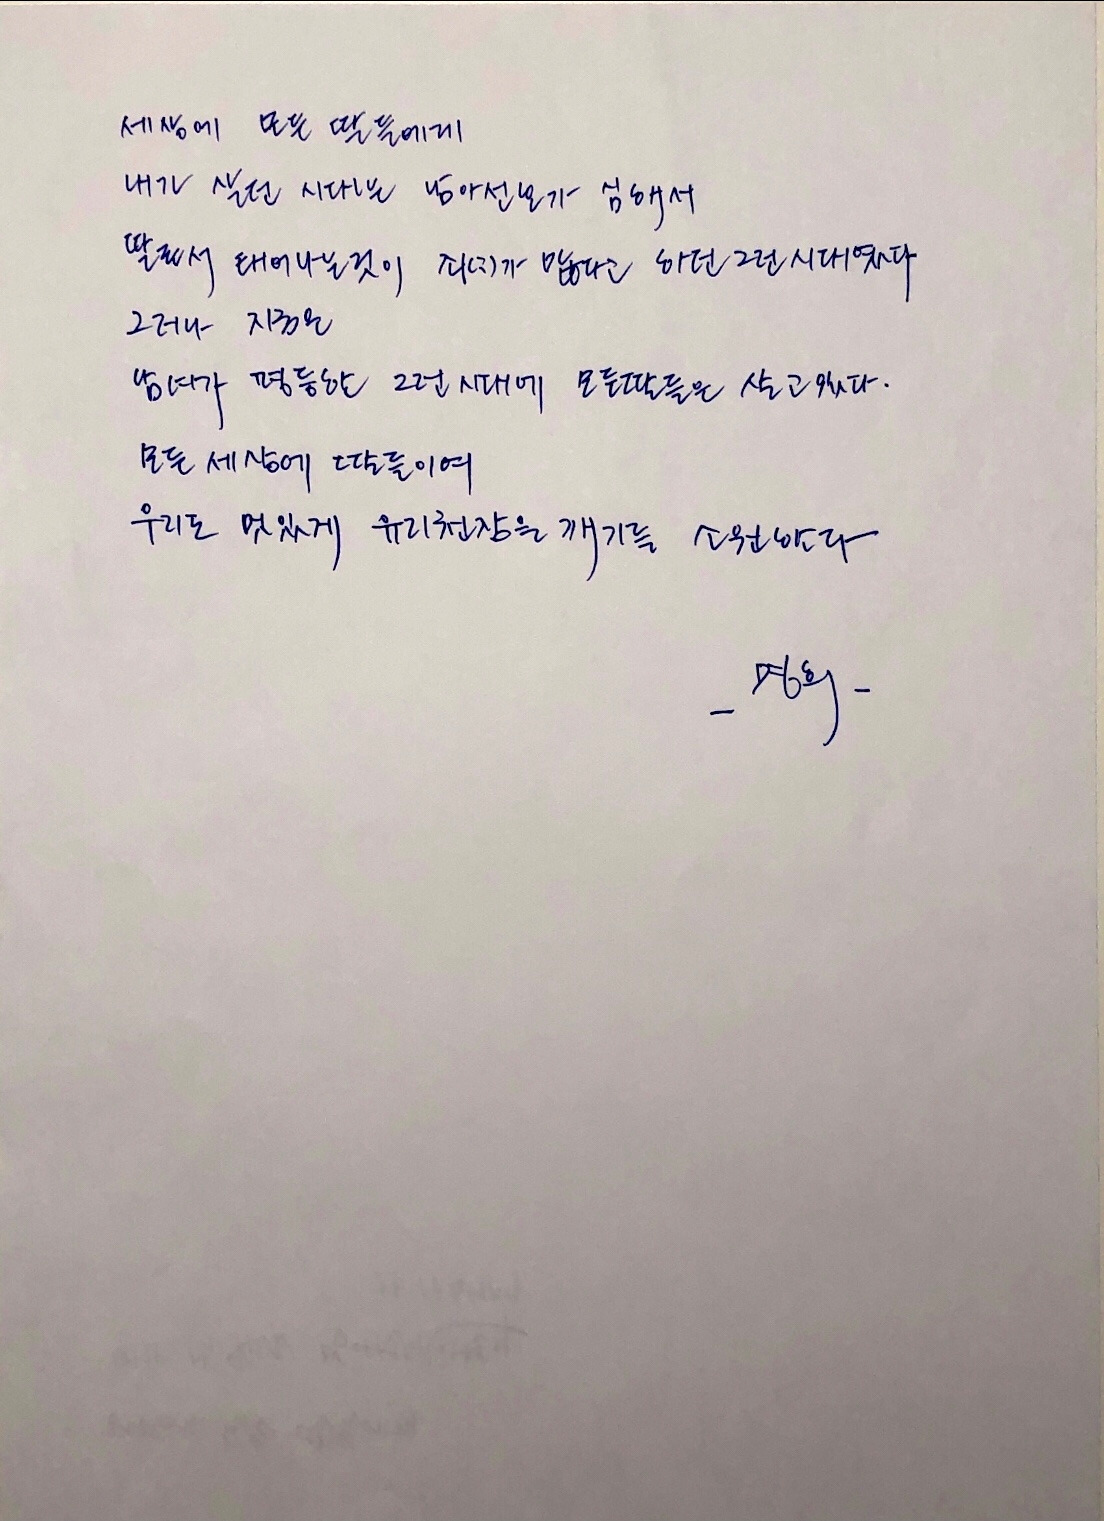 세상에 모든 딸들에게
내가 살던 시대는 남아선호가 심해서
딸로써 태어나는것이 죄(긔)가 많다고 하던 그런시대였다
그러나 지금은
남녀가 평등한 그런시대에 모든딸들은 살고있다.
모든 세상에 딸들이여
우리도 멋있게 유리천장을 깨기를 소원한다
- 명희 -